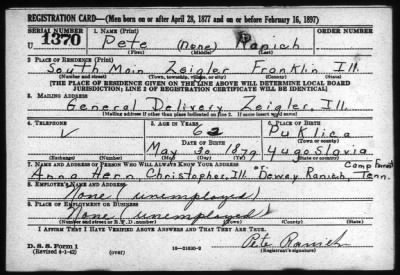 REGISTRATION CARD—(Men born on or after April 28, 1877 and on or before February 16, 1897)
SERIAL NUMBER
1. NAME (Print)
ORDER NUMBER
U 1370
Pete (None) Ranich
(First) (Middle) (Last)
2. PLACE OF RESIDENCE (Print)
South Main Zeigler Franklin Ill.
(Number and street) (Town, township, village, or city) (County) (State)
[THE PLACE OF RESIDENCE GIVEN ON THE LINE ABOVE WILL DETERMINE LOCAL BOARD
JURISDICTION; LINE 2 OF REGISTRATION CERTIFICATE WILL BE IDENTICAL]
3. MAILING ADDRESS
General Delivery Zeigler, Ill.
[Mailing address if other than place indicated on line 2. If same insert word same]
4. TELEPHONE
5. AGE IN YEARS
6. PLACE OF BIRTH
62
Puklica
DATE OF BIRTH
(Town or county)
May 30 1879
Yugoslavia
(Exchange) (Number) (Mo.) (Day) (Yr.) (State or country)
7. NAME AND ADDRESS OF PERSON WHO WILL ALWAYS KNOW YOUR ADDRESS
Camp Forrest
Anna Hern, Christopher, Ill. Dewey Ranich, Tenn.
8. EMPLOYER'S NAME AND ADDRESS
None (unemployed)
9. PLACE OF EMPLOYMENT OR BUSINESS
None (unemployed)
(Number and street or R. F. D. number) (Town) (County) (State)
I AFFIRM THAT I HAVE VERIFIED ABOVE ANSWERS AND THAT THEY ARE TRUE.
D. S. S. Form 1
(Revised 4-1-42) (over) 16—21630-2
Pete Ranich
(Registrant's signature)